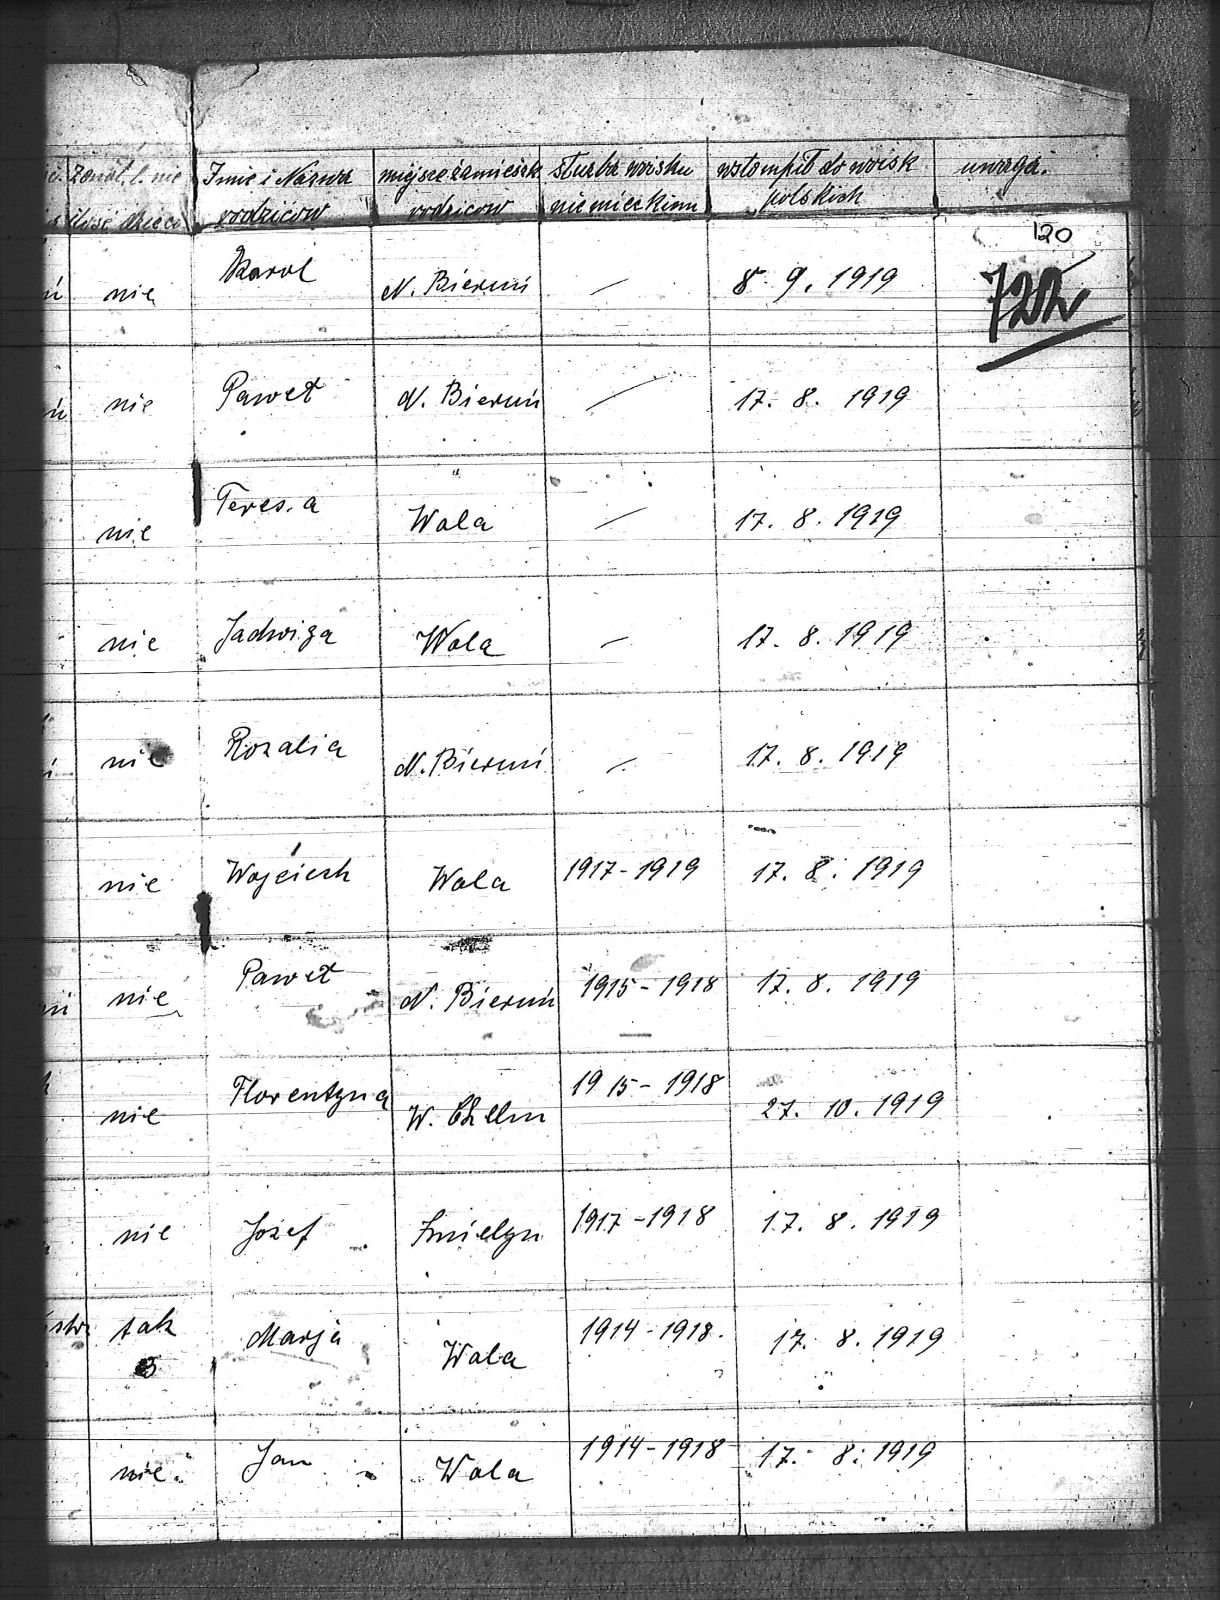 Żonat. l. nie Imie i Nazwa miejsce zamieszk służba woisku wstompił do woisk uwaga.
ilość dzieci rodzicow rodzicow niemieckimu polskich
120
nie Karol N. Bieruń — 8. 9. 1919 722
nie Paweł N. Bieruń — 17. 8. 1919
"
nie Teresia Wola — 17. 8. 1919
nie Jadwiga Wola — 17. 8. 1919
nie Rozalia N. Bieruń — 17. 8. 1919
nie Wojciech Wola 1917-1919 17. 8. 1919
nie Paweł N. Bieruń 1915-1918 17. 8. 1919
nie Florentyna W. Chełm 1915-1918 27. 10. 1919
nie Józef Imielyn 1917-1918 17. 8. 1919
tak Marja Wola 1914-1918. 17. 8. 1919
nie Jan Wola 1914-1918 17. 8. 1919